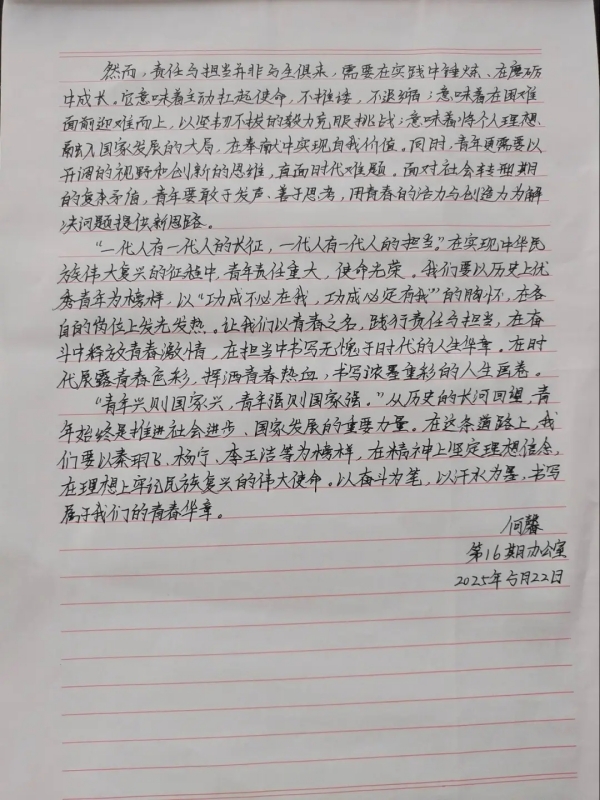 然而，责任与担当并非与生俱来，需要在实践中锤炼、在磨砺
中成长。它意味着主动扛起使命，不推诿，不退缩；意味着在困难
面前迎难而上，以坚韧不拔的毅力克服挑战；意味着将个人理想
融入国家发展的大局，在奉献中实现自我价值。同时，青年更需要以
开阔的视野和创新的思维，直面时代难题。面对社会转型期
的复杂矛盾，青年要敢于发声、善于思考，用青春的活力与创造力为解
决问题提供新思路。
“一代人有一代人的长征，一代人有一代人的担当。”在实现中华民
族伟大复兴的征程中，青年责任重大，使命光荣。我们要以历史上优
秀青年为榜样，以“功成不必在我，功成必定有我”的胸怀，在各
自的岗位上发光发热。让我们以青春之名，践行责任与担当，在奋
斗中释放青春激情，在担当中书写无愧于时代的人生华章。在时
代展露青春色彩，挥洒青春热血，书写浓墨重彩的人生画卷。
“青年兴则国家兴，青年强则国家强。”从历史的长河回望，青
年始终是推进社会进步、国家发展的重要力量。在这条道路上，我
们要以秦玥飞、杨宁、李玉洁等为榜样，在精神上坚定理想信念，
在理想上牢记民族复兴的伟大使命。以奋斗为笔，以汗水为墨，书写
属于我们的青春华章。
何馨
第16期办公室
2025年5月22日